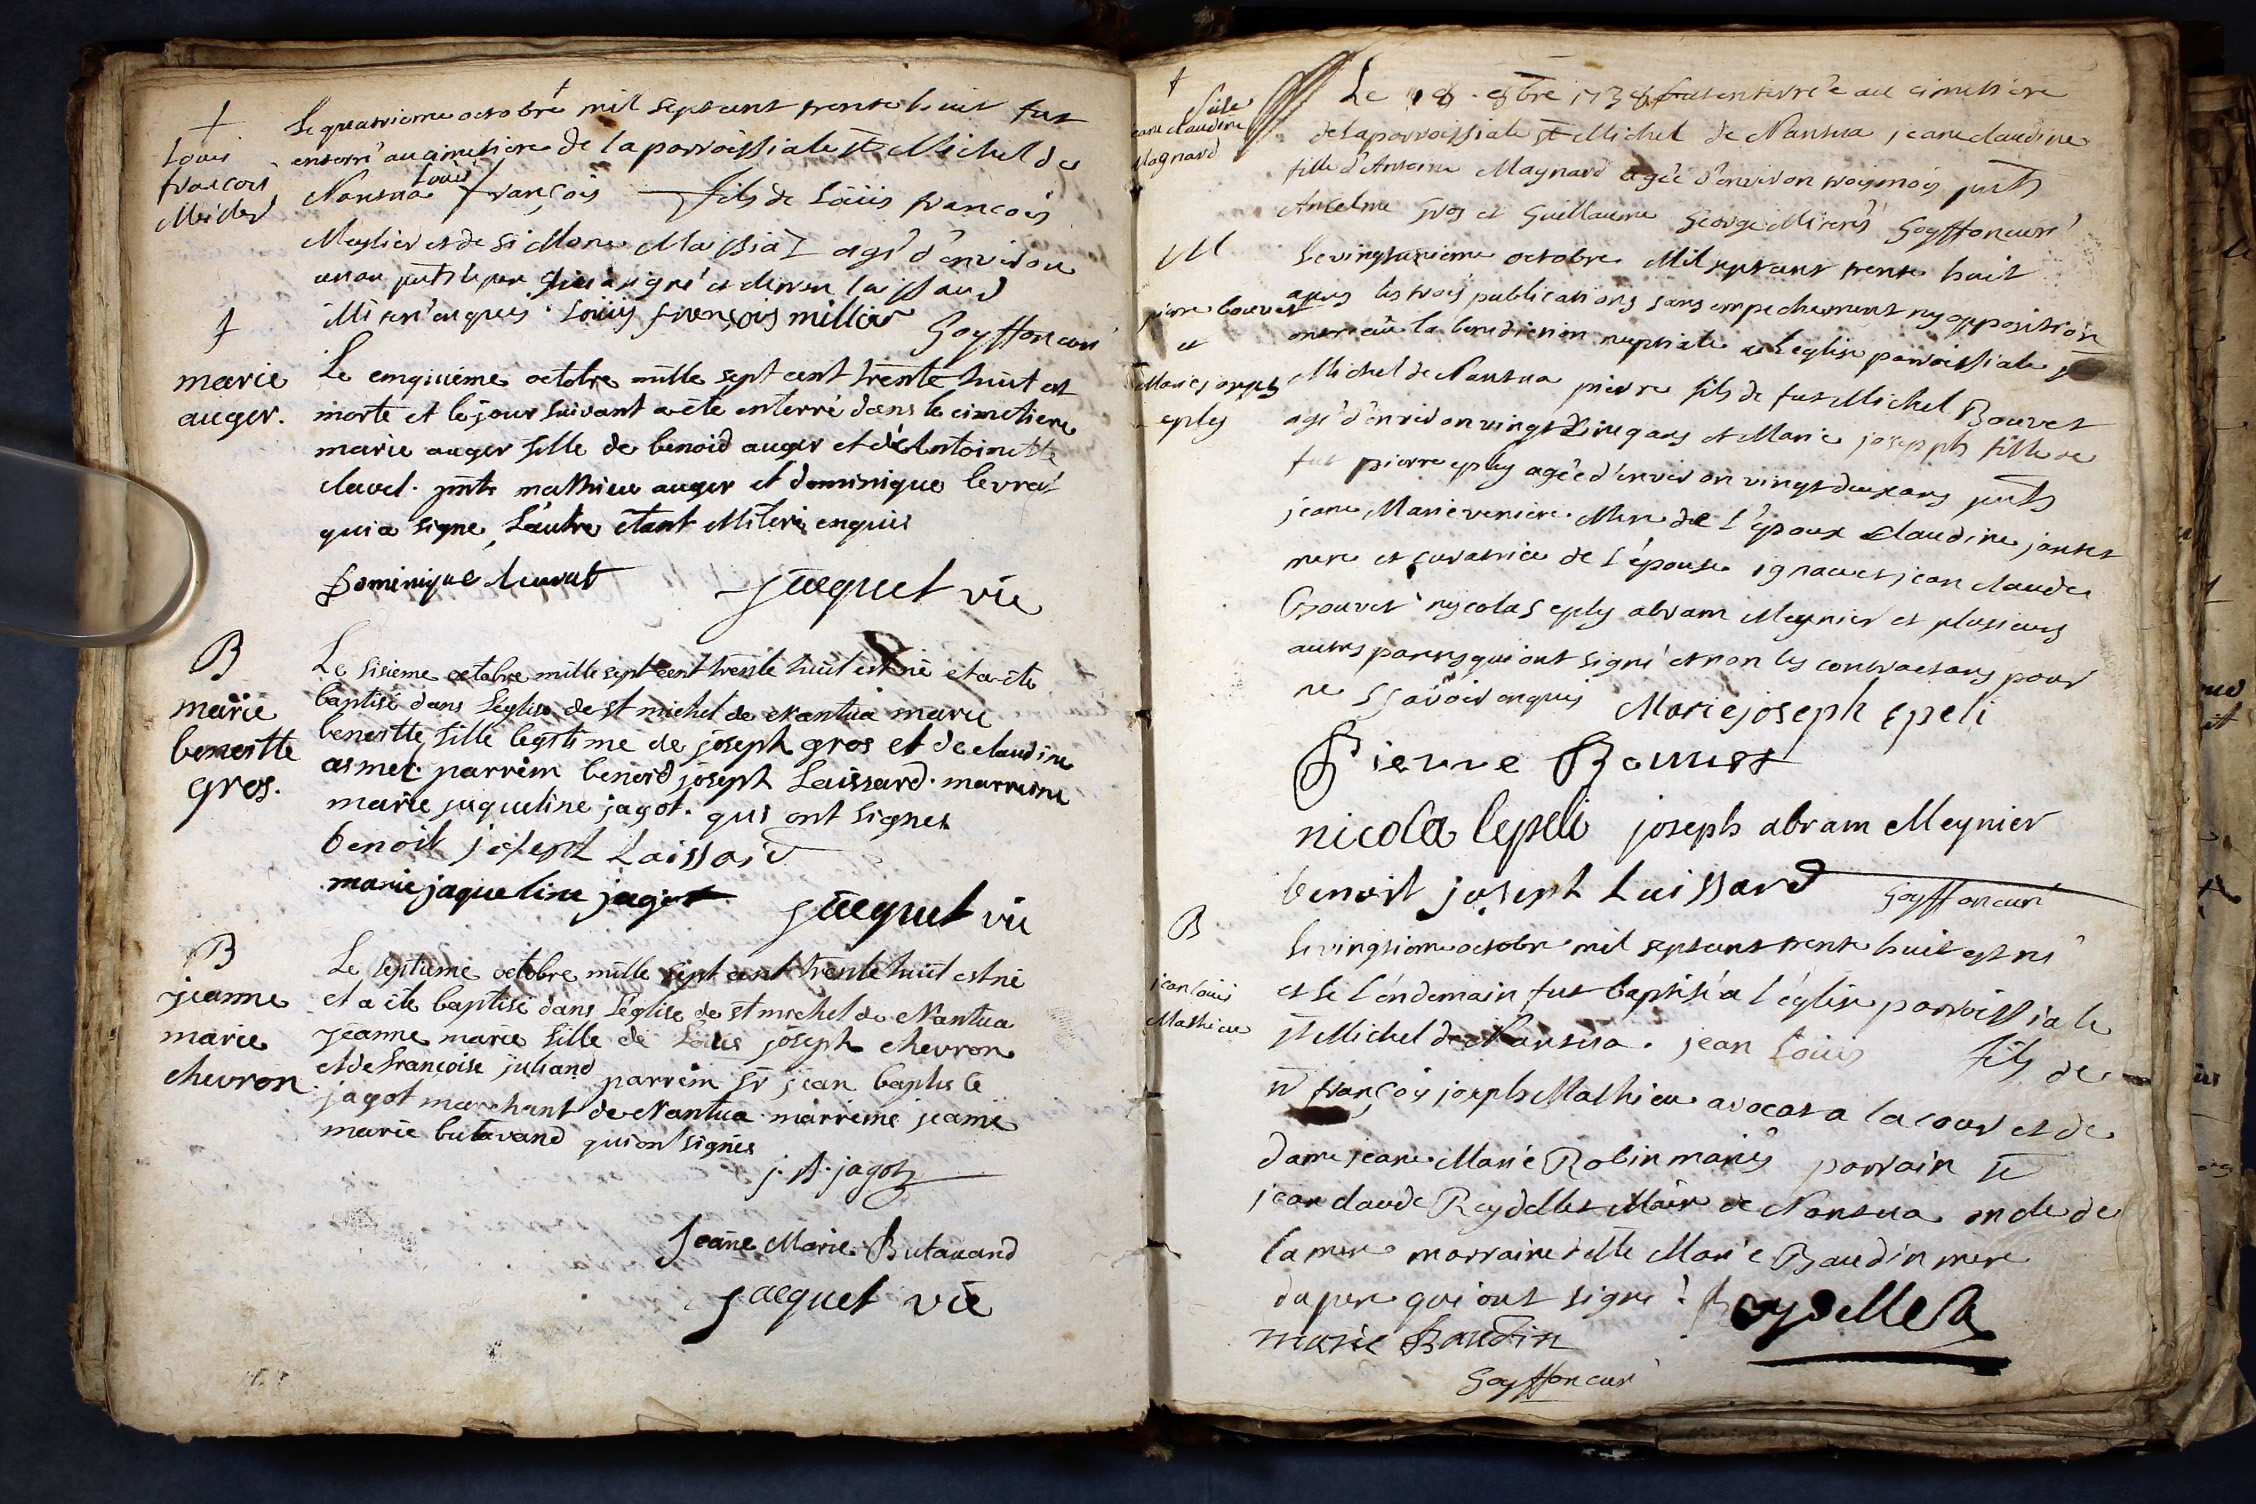 +
Louis
francois
Meilier
Le quatrieme octobre mil septcent trente huit fut
enterré au cimetiere de la parroissiale st Michel de
Nantua Louis françois fils de Loüis françois
Meylier et de Simone Maissiat agé d'environ
un an pnts le pere qui a signé et
illiteré enquis. Loüis françois millier Goyffon curé
+
marie
auger.
Le cinquiéme octobre mille sept cent trente huit est
morte et le jour suivant a été enterré dans le cimetiere
marie auger fille de benoid auger et d'Antoinette
clavel. pnts mathieu auger et dominique levrat
qui a signe, L'autre étant illiteré enquis
Dominique Leuvrat Jacquet vic
B
marie
benoitte
gros.
Le sisieme octobre mille sept cent trente huit est né et a été
baptisé dans L'eglise de st michel de Nantua marie
benoitte fille legitime de joseph gros et de claudine
asmet. parrein benoid joseph Laissard. marreine
marie jaqueline jagot. qui ont signes
benoit joseph Laissard
marie jaqueline jagot Jacquet vic
B
jeanne
marie
chevron
Le septieme octobre mille sept cent trente huit est né
et a été baptisé dans L'église de st michel de Nantua
jeanne marie fille de Loüis joseph chevron
et de françoise juliand parrein Sr jean baptiste
jagot marchant de Nantua. marreine jeanne
marie butavand qui ont signés
j. B. jagot
Jeanne Marie Butavand
Jacquet vic
+
jeane claudine
Magnard
Le 18. 8bre 1738 fut enterrée au cimetiere
de la parroissiale st Michel de Nantua jeane claudine
fille d'Antoine Magnard agée d'environ trois mois pnts
Antelme Gros et Guillaume George illiterés Goyffon curé
M
pierre bouvet
et
Marie joseph
eply
Le vingtunieme octobre Mil septcent trente huit
apres les trois publications sans empechement ny opposition
ont receu la benediction nuptiale a L'eglise parroissiale st
Michel de Nantua pierre fils de fut Michel Bouvet
agé d'environ vingt cinq ans et Marie joseph fille de
fut pierre eply agée d'environ vingt deux ans pnts
jeane Marie veniere Mere de l'époux Claudine jantet
mere et curatrice de l'épouse ignace et jean claude
Bouvet nycolas eply abram Meynier et plusieurs
autres parens qui ont signé et non les contractans pour
ne sçavoir enquis Marie joseph epeli
Pierre Bouvet
nicola lepeli joseph abram Meynier
benoit joseph Laissard Goyffon curé
B
jean louis
Mathieu
Le vingtieme octobre mil septcent trente huit est né
et le l'endemain fut baptisé a l'église parroissiale
st Michel de Nantua. jean Louis fils de
Sr françois joseph Mathieu avocat a la cour et de
dame jeane Marie Robin mariés parrain Sr
jean claude Reydellet Maire de Nantua oncle de
la mere marraine delle Marie Baudin mere
du pere qui ont signé. Reydellet
marie Baudin
Goyffon curé